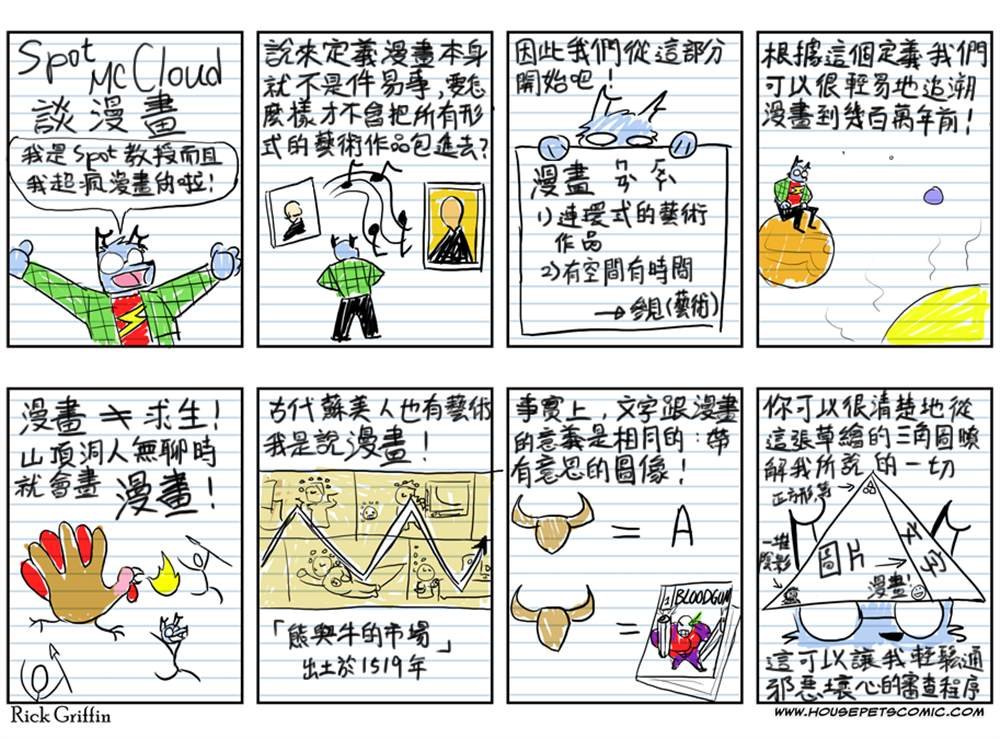 Spot
McCloud
談漫畫
我是Spot教授而且
我超瘋漫畫的啦！
說來定義漫畫本身
就不是件易事，要怎
麼樣才不會把所有形
式的藝術作品包進去？
因此我們從這部分
開始吧！
漫畫 ㄇㄢˋ ㄏㄨㄚˋ
1)連環式的藝術
作品
2)有空間有時間
→參見(藝術)
根據這個定義我們
可以很輕易地追溯
漫畫到幾百萬年前！
漫畫≠求生！
山頂洞人無聊時
就會畫 漫畫！
古代蘇美人也有藝術
我是說漫畫！
「熊與牛的市場」
出土於1519年
事實上，文字跟漫畫
的意義是相同的：帶
有意思的圖像！
= A
=
1 BLOODGUM
你可以很清楚地從
這張草繪的三角圖瞭
解我所說的一切
正方形,等
一堆
陰影
圖片
文字
漫畫！
這可以讓我輕鬆通
過惡壞心的審查程序
Rick Griffin
WWW.HOUSEPETSCOMIC.COM